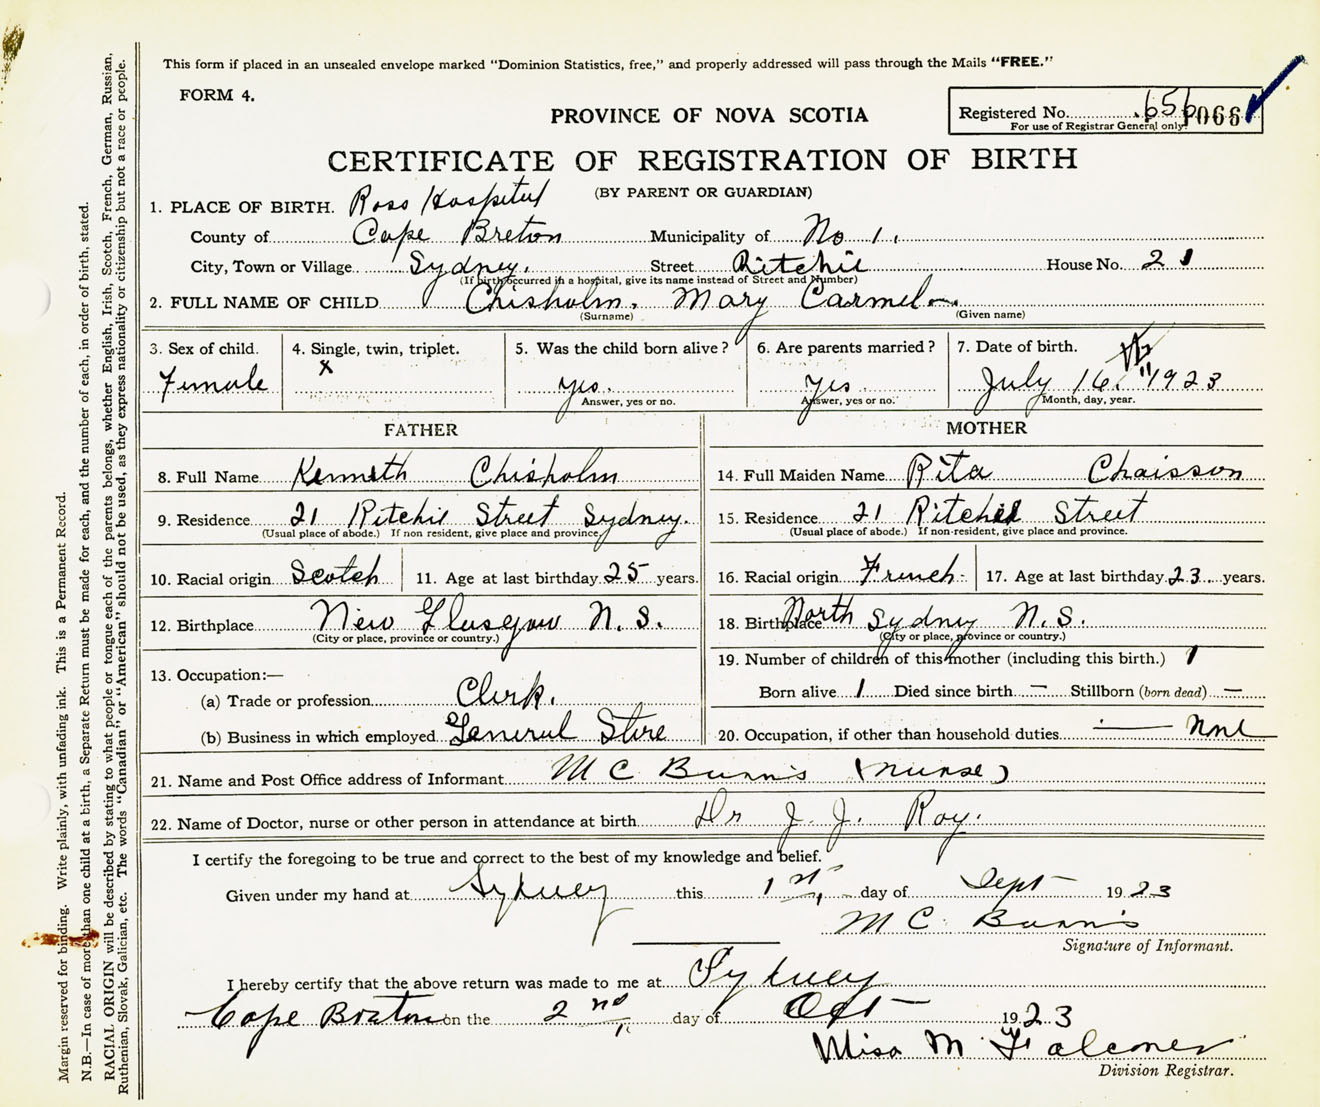 This form if placed in an unsealed envelope marked "Dominion Statistics, free," and properly addressed will pass through the Mails "FREE."
FORM 4.
PROVINCE OF NOVA SCOTIA
Registered No. 656 1066
For use of Registrar General only.
CERTIFICATE OF REGISTRATION OF BIRTH
(BY PARENT OR GUARDIAN)
1. PLACE OF BIRTH. Ross Hospital
County of Cape Breton Municipality of No 1.
City, Town or Village Sydney. Street Ritchie House No. 21
(If birth occurred in a hospital, give its name instead of Street and Number)
2. FULL NAME OF CHILD Chisholm. Mary Carmel
(Surname) (Given name)
3. Sex of child. 4. Single, twin, triplet. 5. Was the child born alive? 6. Are parents married? 7. Date of birth.
Female x yes. yes. July 16. 1923
Answer, yes or no. Answer, yes or no. Month, day, year.
FATHER MOTHER
8. Full Name Kenneth Chisholm 14. Full Maiden Name Rita Chaisson
9. Residence 21 Ritchie Street Sydney. 15. Residence 21 Ritchie Street
(Usual place of abode.) If non resident, give place and province. (Usual place of abode.) If non-resident, give place and province.
10. Racial origin Scotch 11. Age at last birthday 25 years. 16. Racial origin French 17. Age at last birthday 23 years.
12. Birthplace New Glasgow N.S. 18. Birthplace North Sydney N.S.
(City or place, province or country.) (City or place, province or country.)
13. Occupation:— 19. Number of children of this mother (including this birth.) 1
(a) Trade or profession Clerk. Born alive 1 Died since birth — Stillborn (born dead) —
(b) Business in which employed General Store 20. Occupation, if other than household duties — None
21. Name and Post Office address of Informant M C Bunn's (nurse)
22. Name of Doctor, nurse or other person in attendance at birth Dr J. J. Roy.
I certify the foregoing to be true and correct to the best of my knowledge and belief.
Given under my hand at Sydney this 1st day of Sept 1923
M C. Bunn's
Signature of Informant.
I hereby certify that the above return was made to me at Sydney
Cape Breton on the 2nd day of Oct 1923
Miss M Falconer
Division Registrar.
Margin reserved for binding. Write plainly, with unfading ink. This is a Permanent Record.
N.B.—In case of more than one child at a birth, a Separate Return must be made for each, and the number of each, in order of birth, stated.
RACIAL ORIGIN will be described by stating to what people or tongue each of the parents belongs, whether English, Irish, Scotch, French, German, Russian,
Ruthenian, Slovak, Galician, etc. The words "Canadian" or "American" should not be used, as they express nationality or citizenship but not a race or people.